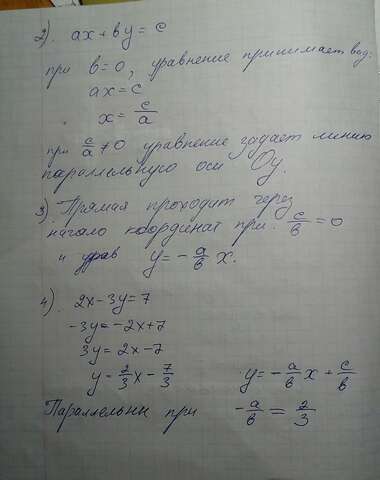 2). ax + by = c
при b=0, уравнение принимает вид:
ax = c
x = c/a
при c/a ≠ 0 уравнение задает линию
параллельную оси Oy.
3) Прямая проходит через
начало координат при c/b = 0
и урав y = - a/b x.
4). 2x - 3y = 7
-3y = -2x + 7
3y = 2x - 7
y = 2/3 x - 7/3 y = - a/b x + c/b
Параллельны при - a/b = 2/3